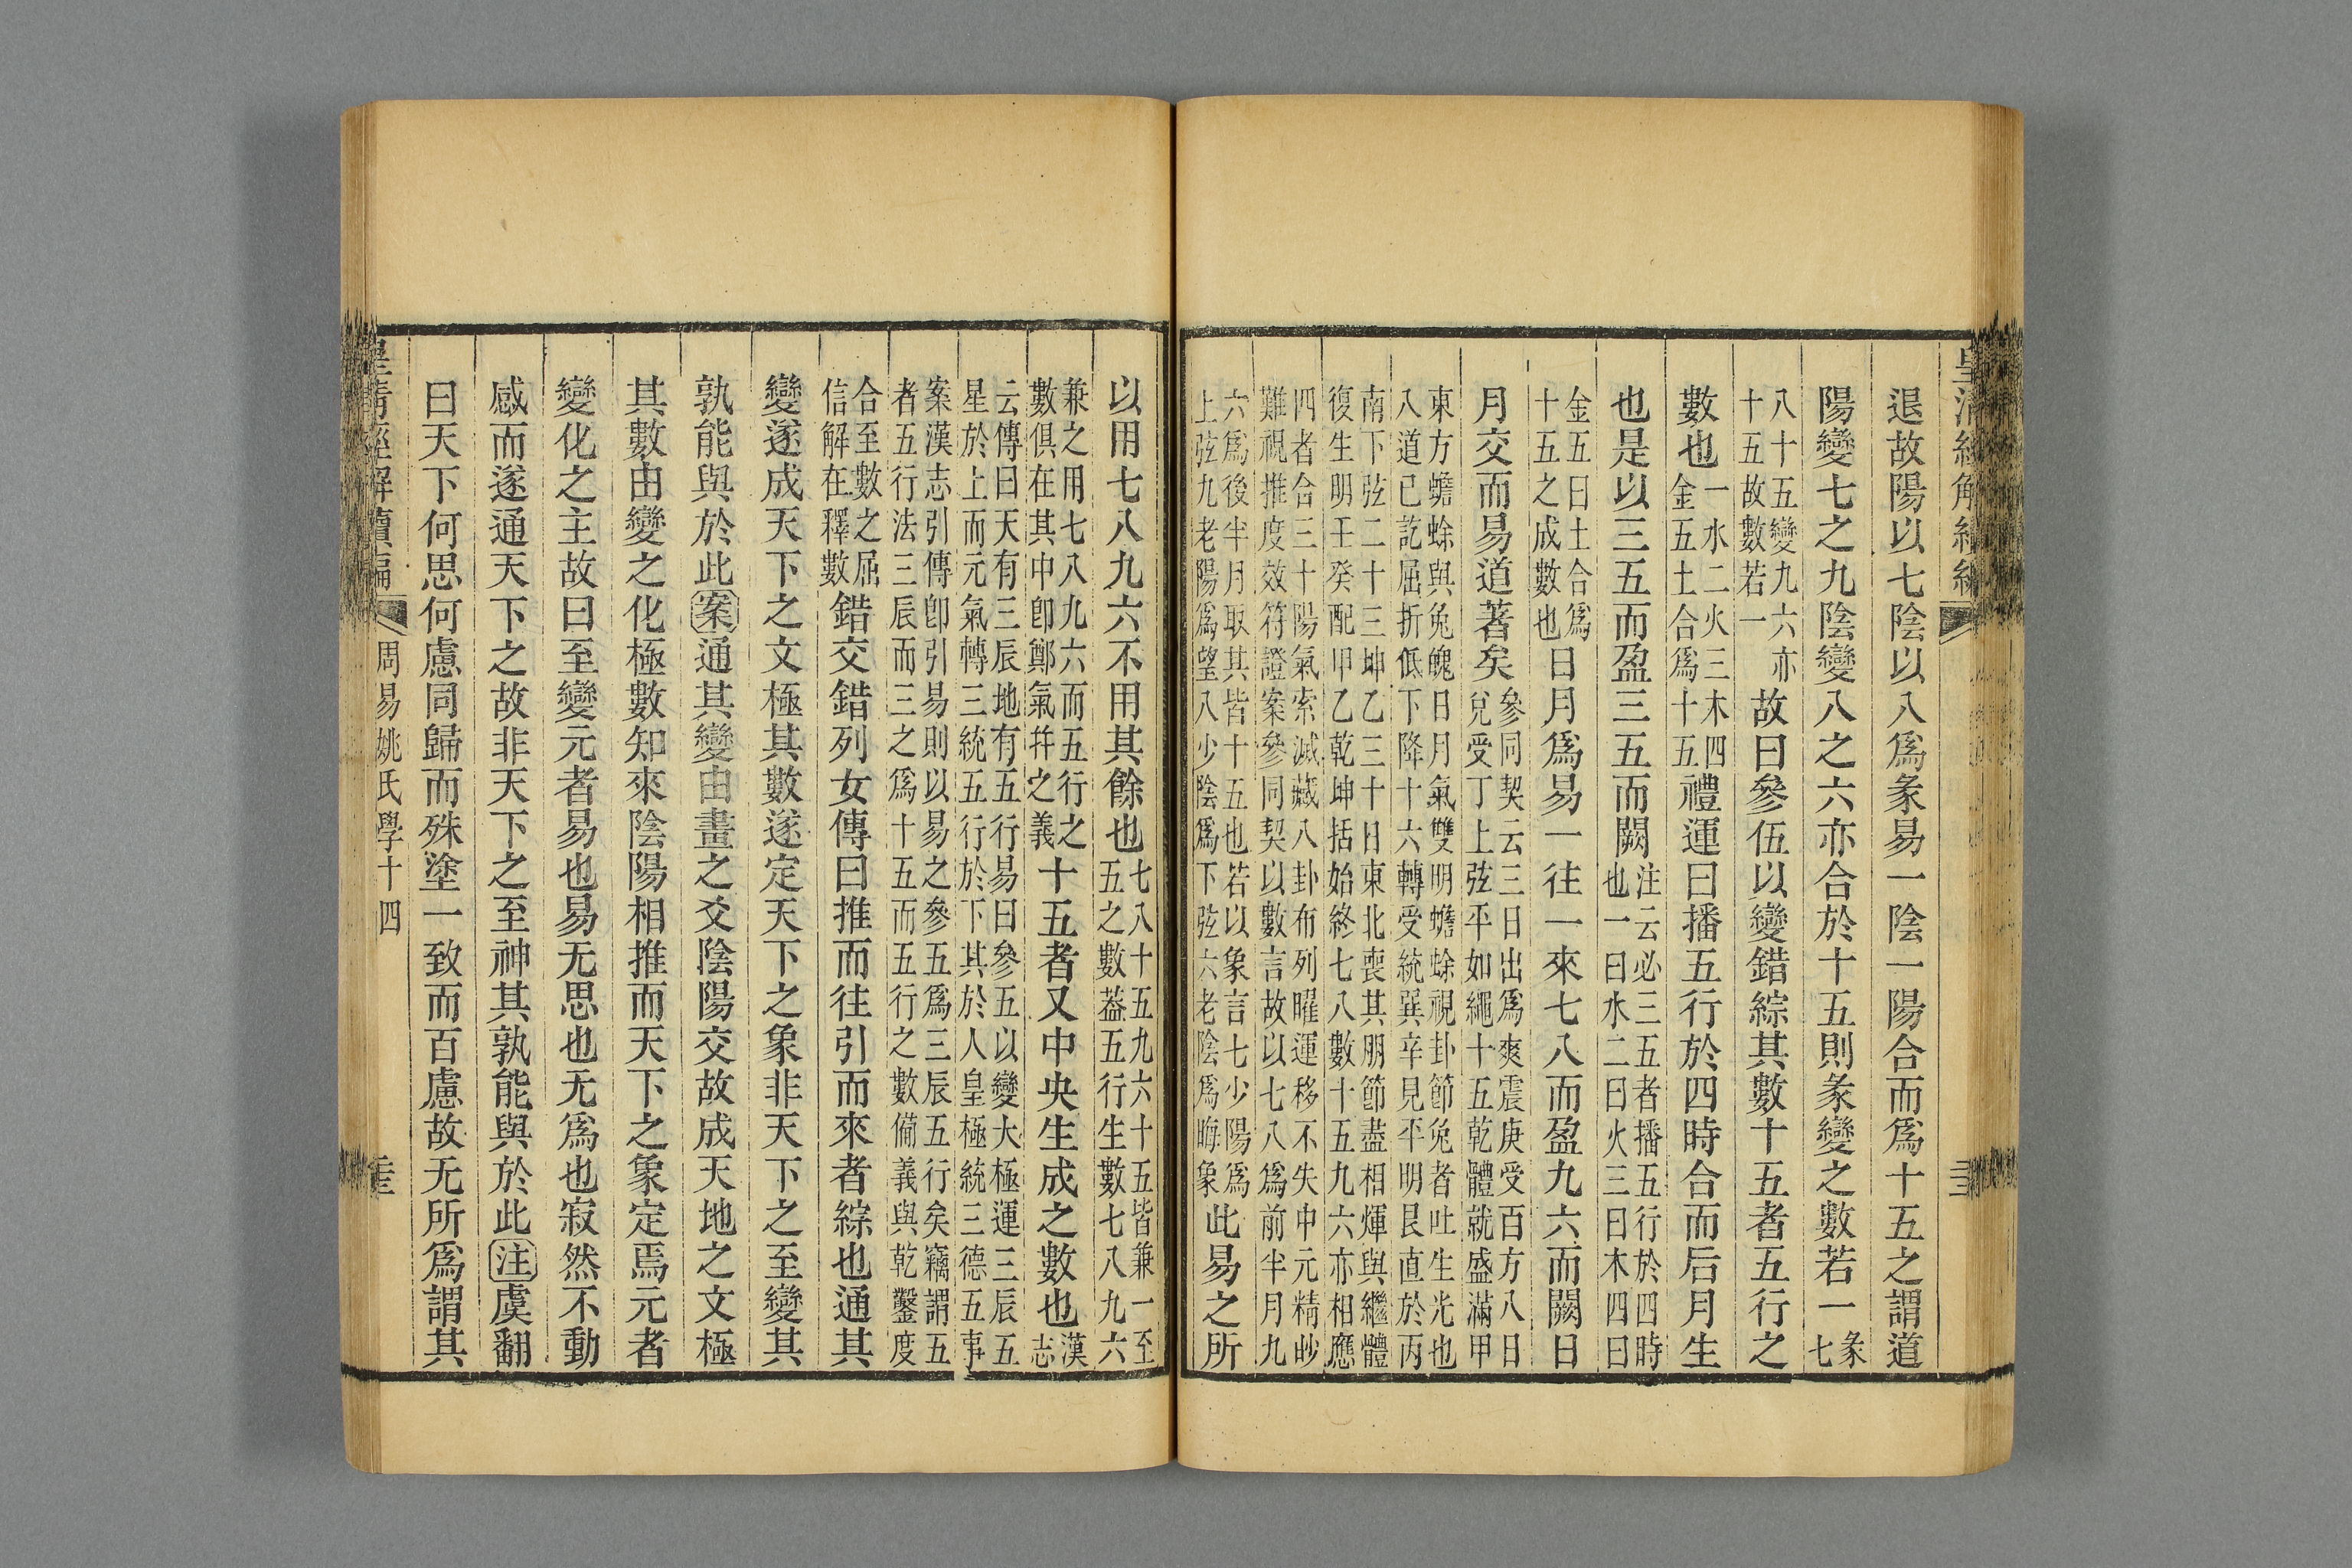 皇清經解續編
退故陽以七陰以八爲彖易一陰一陽合而爲十五之謂道
陽變七之九陰變八之六亦合於十五則彖變之數若一彖七
八十五變九六亦十五故數若一故曰參伍以變錯綜其數十五者五行之
數也一水二火三木四金五土合爲十五禮運曰播五行於四時合而后月生
也是以三五而盈三五而闕注云必三五者播五行於四時也一曰水二曰火三曰木四曰
金五曰土合爲十五之成數也日月爲易一往一來七八而盈九六而闕日
月交而易道著矣參同契云三日出爲爽震庚受百方八日兌受丁上弦平如繩十五乾體就盛滿甲
東方蟾蜍與兔魄日月氣雙明蟾蜍視卦節兔者吐生光也八道已訖屈折低下降十六轉受統巽辛見平明艮直於丙
南下弦二十三坤乙三十日東北喪其朋節盡相煇與繼體復生明壬癸配甲乙乾坤括始終七八數十五九六亦相應
四者合三十陽氣索滅藏八卦布列曜運移不失中元精眇難視推度效符證案參同契以數言故以七八爲前半月九
六爲後半月取其皆十五也若以象言七少陽爲上弦九老陽爲望八少陰爲下弦六老陰爲晦象此易之所
以用七八九六不用其餘也七八十五九六十五皆兼一至五之數葢五行生數七八九六
兼之用七八九六而五行之數俱在其中卽鄭氣幷之義十五者又中央生成之數也漢志
云傳曰天有三辰地有五行易曰參五以變大極運三辰五星於上而元氣轉三統五行於下其於人皇極統三德五事
案漢志引傳卽引易則以易之參五爲三辰五行矣竊謂五者五行法三辰而三之爲十五而五行之數備義與乾鑿度
合至數之屈信解在釋數錯交錯列女傳曰推而往引而來者綜也通其
變遂成天下之文極其數遂定天下之象非天下之至變其
孰能與於此案通其變由畫之爻陰陽交故成天地之文極
其數由變之化極數知來陰陽相推而天下之象定焉元者
變化之主故曰至變元者易也易无思也无爲也寂然不動
感而遂通天下之故非天下之至神其孰能與於此注虞翻
曰天下何思何慮同歸而殊塗一致而百慮故无所爲謂其
皇清經解續編 周易姚氏學十四